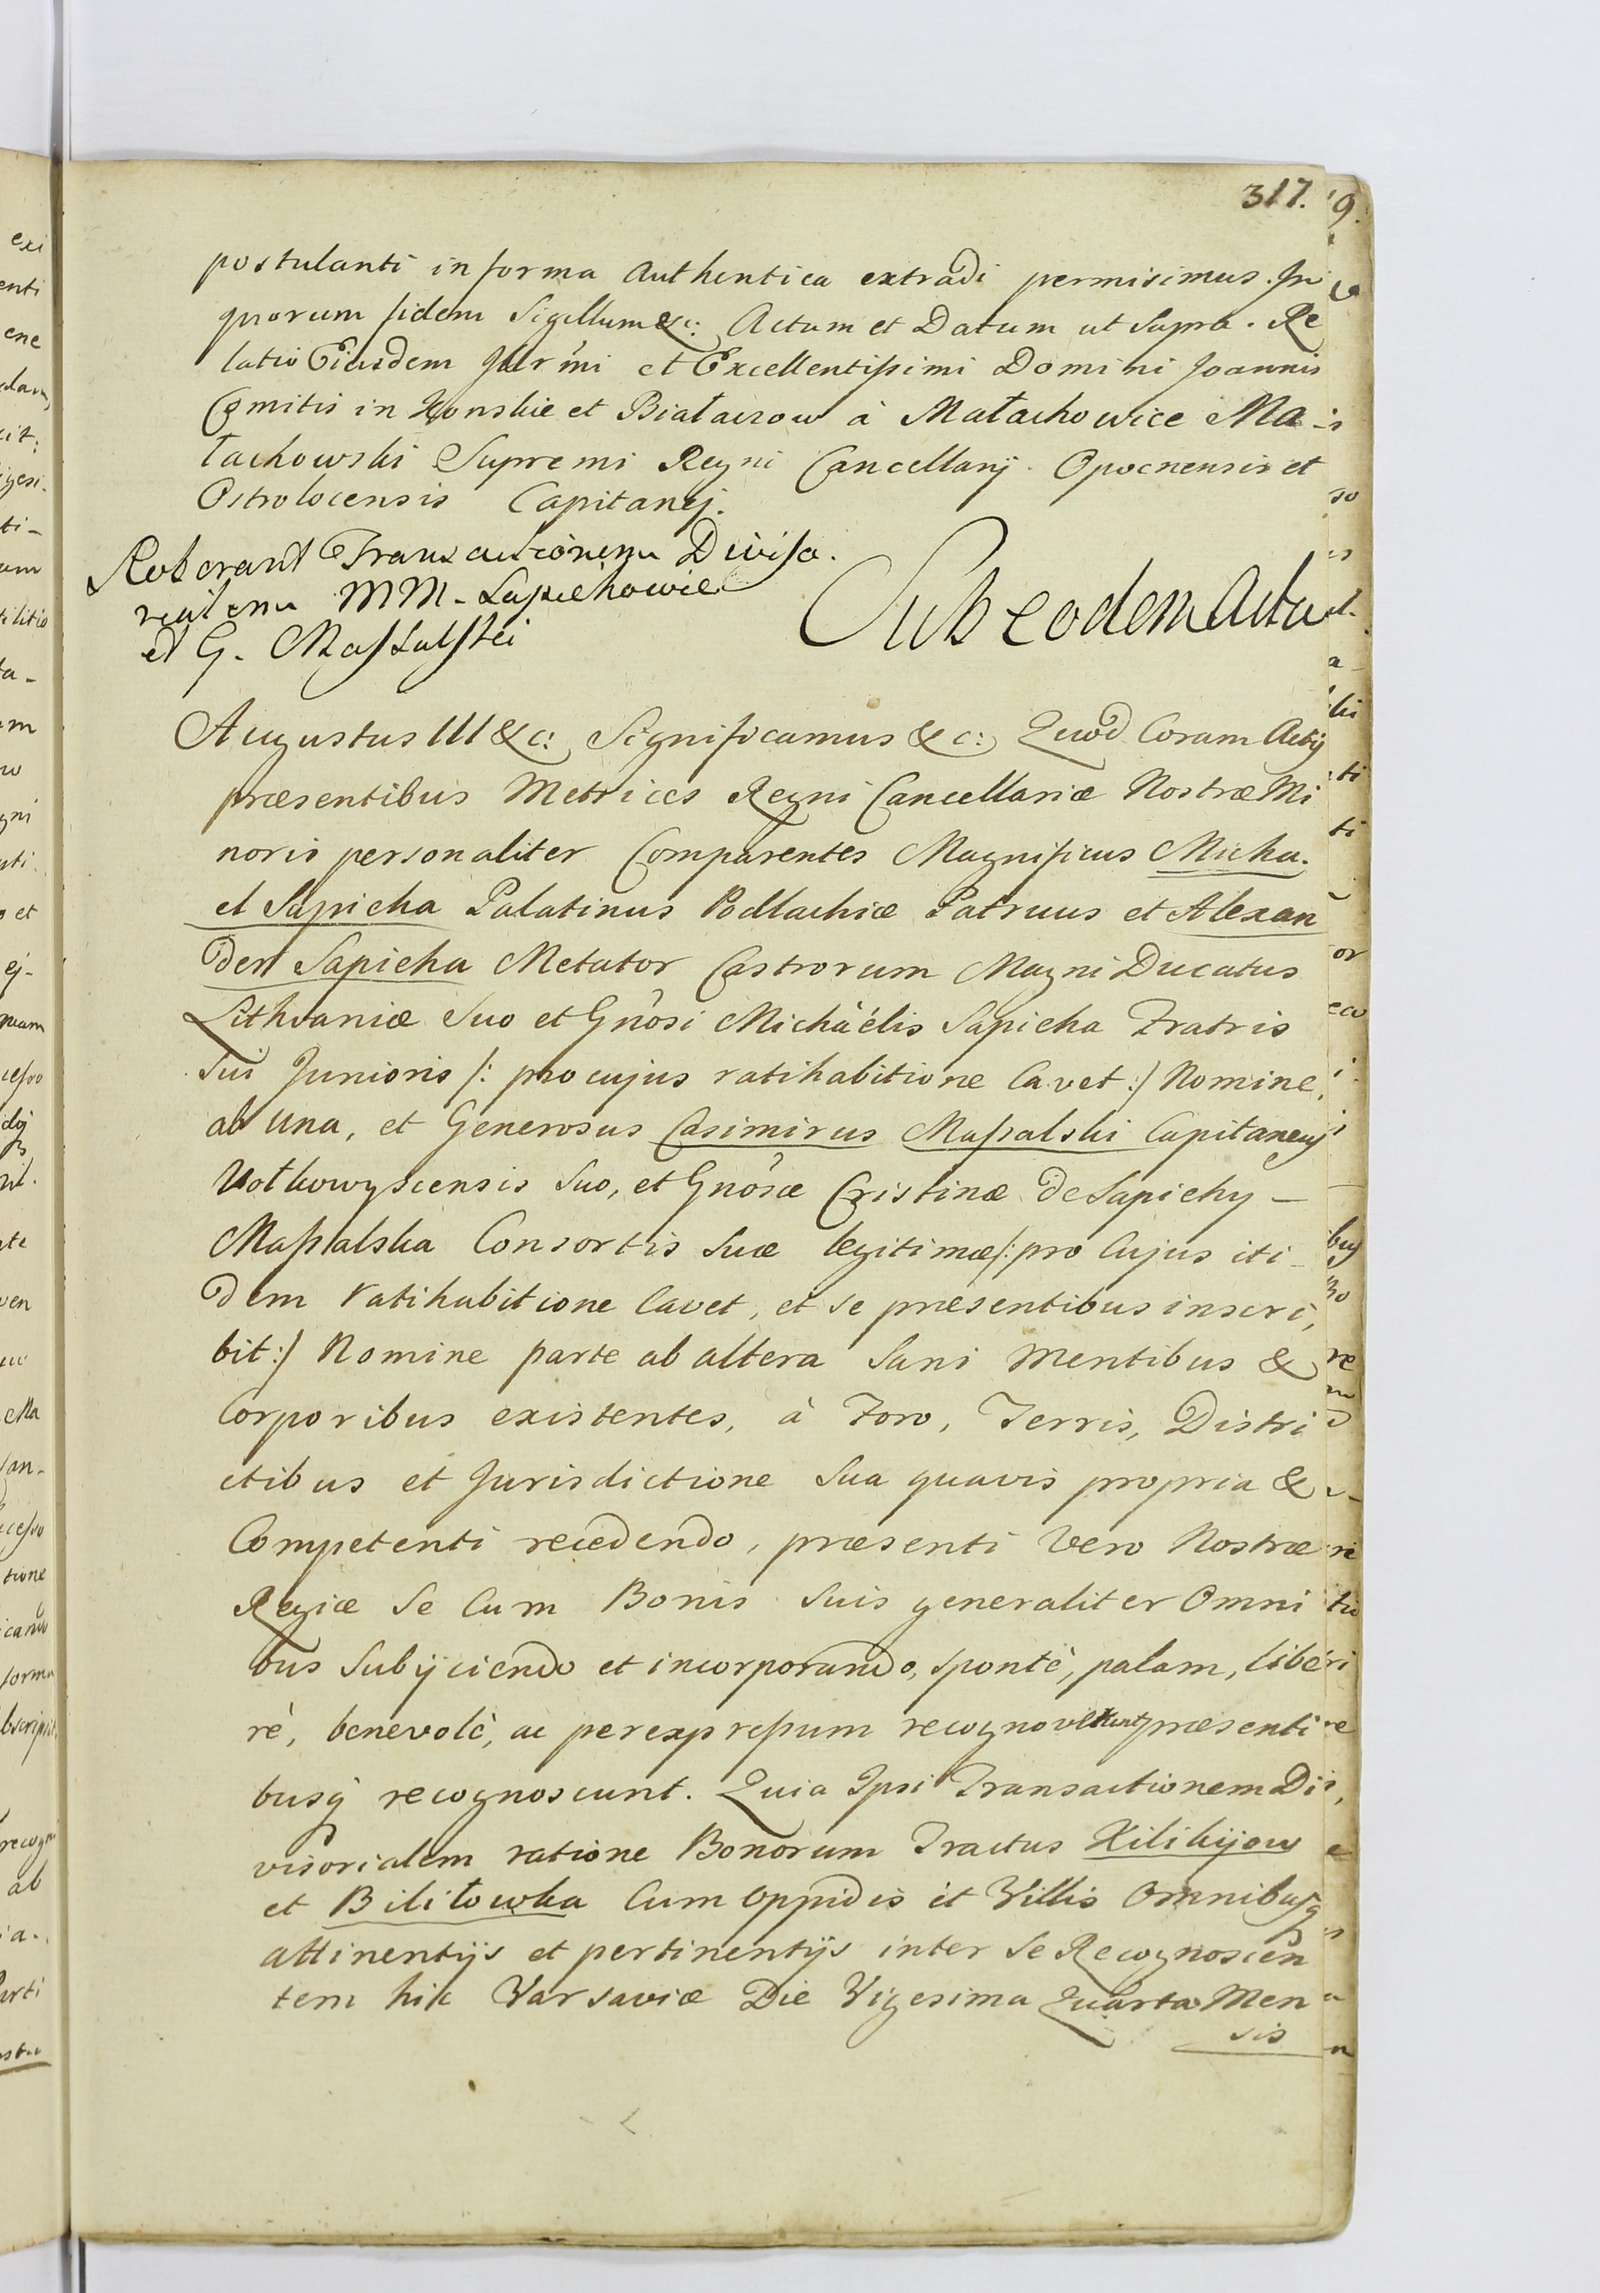 317.
postulanti in forma Authentica extradi permisimus. In
quorum fidem Sigillum &c: Actum et Datum ut Supra. Re
latio Eiusdem Illrmi et Excellentissimi Domini Joannis
Comitis in Konskie et Białaczow à Małachowice Ma
łachowski Supremi Regni Cancellarij. Opocnensis et
Ostrolocensis Capitanej.
Roborant Transactionem Diviso.
rialem MM. Sapiehowie
et G. Massalski
Sub eodem Actu
Augustus III &c: Significamus &c: Quod Coram Actis
præsentibus Metrices Regni Cancellariæ Nostræ Mi
noris personaliter Comparentes Magnificus Micha.
el Sapieha Palatinus Podlachiæ Patruus et Alexan
der Sapieha Metator Castrorum Magni Ducatus
Lithvaniæ Suo et Gnosi Michàélis Sapieha Fratris
Sui Junioris /: pro cujus ratihabitione Cavet :/ Nomine,
ab una, et Generosus Casimirus Massalski Capitaneus
Wołkowyscensis Suo, et Gnosæ Cristinæ de Sapiehy –
Massalska Consortis Suæ legitimæ /: pro Cujus iti–
dem ratihabitione Cavet, et se præsentibus inscri,
bit :/ Nomine parte ab altera Sani Mentibus &
Corporibus existentes, à Foro, Terris, Distri
ctibus et Jurisdictione Sua quavis propria &
Competenti recedendo, præsenti Vero Nostræ
Regiæ Se Cum Bonis Suis generaliter Omni
bus Subijciendo et incorporando, spontè, palam, libe
rè, benevolè, ac per expressum recognoverunt præsenti
busq recognoscunt. Quia Ipsi Transactionem Di
visorialem ratione Bonorum Tractus Xilikijow
et Biliłowka Cum Oppidis èt Villis Omnibusq
attinentijs et pertinentijs inter Se Recognoscen
tem hic Varsaviæ Die Vigesima Quarta Men
sis